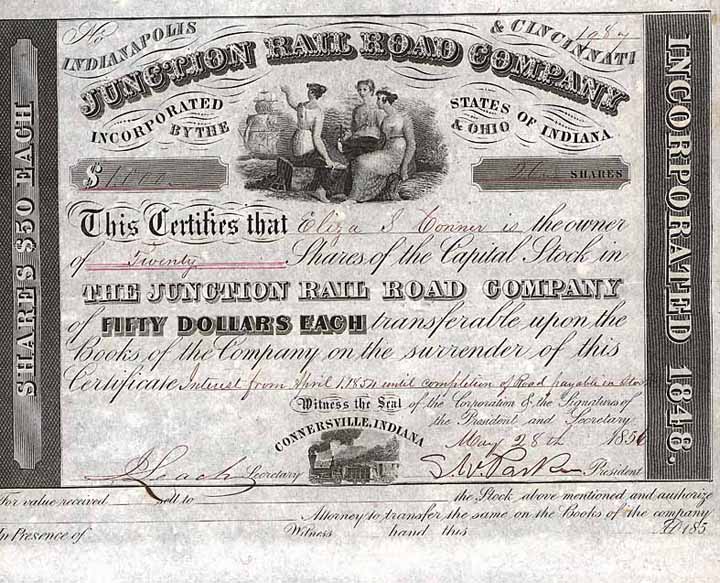 No 108
INDIANAPOLIS & CINCINNATI
JUNCTION RAIL ROAD COMPANY
INCORPORATED BY THE STATES OF INDIANA & OHIO
$1,000. SHARES
This Certifies that Eliza S Conner is the owner
of Twenty Shares of the Capital Stock in
THE JUNCTION RAIL ROAD COMPANY
of FIFTY DOLLARS EACH transferable upon the
Books of the Company on the surrender of this
Certificate Interest from April 1, 1854 until completion of Road payable in Stock
Witness the Seal of the Corporation & the Signatures of
the President and Secretary
CONNERSVILLE, INDIANA
May 28th 1856
J Leach Secretary S. W. Parker President
For value received sell to the Stock above mentioned and authorize
Attorney to transfer the same on the Books of the company
In Presence of Witness hand this AD 185
SHARES $50 EACH
INCORPORATED 1848.